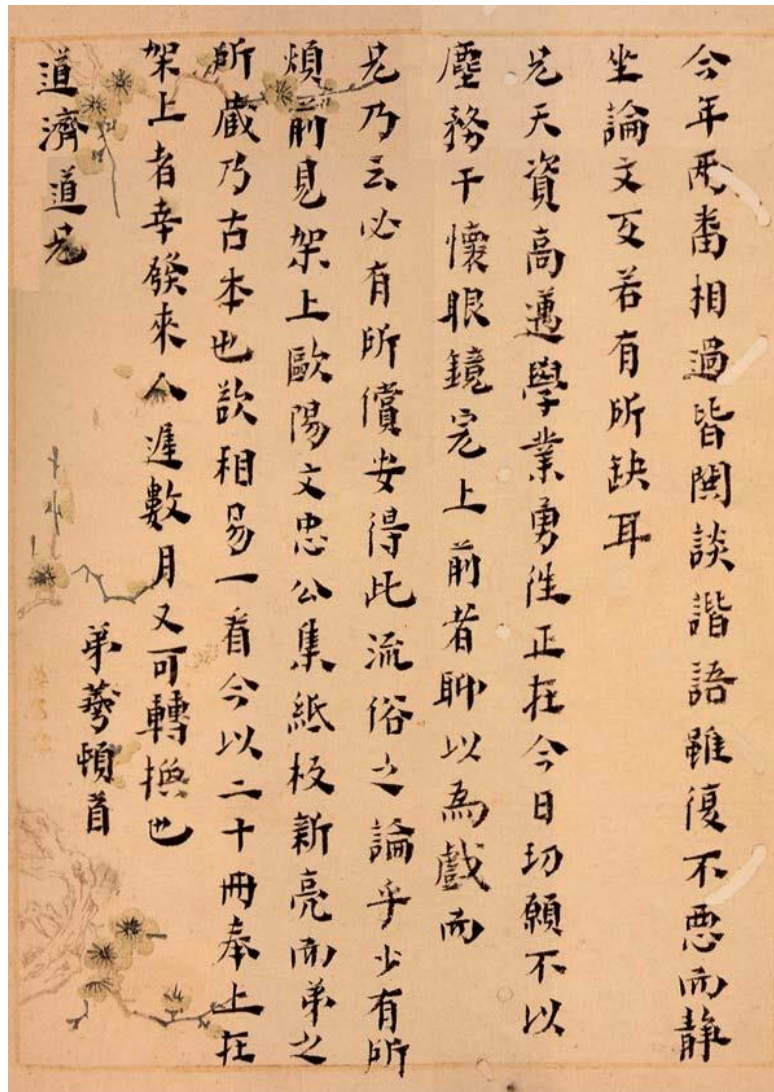 今年两番相過皆閑談諧語雖復不惡而静
坐論文互若有所缺耳
兄天資高邁學業勇往正在今日切願不以
塵務干懷眼鏡完上前者聊以為戲而
兄乃云必有所償安得此流俗之論乎少有所
煩前見架上歐陽文忠公集紙板新亮而弟之
所蔵乃古本也欲相易一看今以二十冊奉上在
架上者幸發來人遲數月又可轉換也
弟頓首
道濟道兄